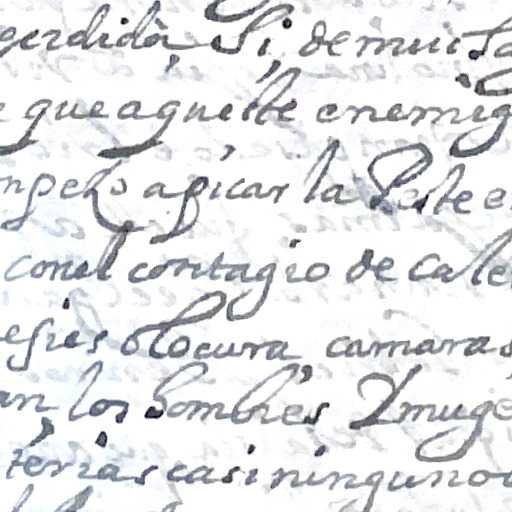 perdida, Si, de muic
que aqueste enemig
a picar la Peste e
con el contagio de cale
locura, camaras
an, los hombres, Y muge
terias casi ninguno